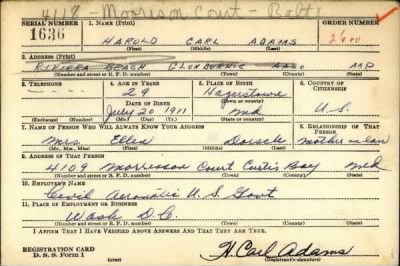 4117 - Morrison Court - Balto
SERIAL NUMBER 1. NAME (Print) ORDER NUMBER
1636 HAROLD CARL ADAMS
(First) (Middle) (Last)
2. ADDRESS (Print)
RIVIERA BEACH GLENBURNIE AACO
(Number and street or R. F. D. number) (Town) (County) (State)
3. TELEPHONE 4. AGE IN YEARS 5. PLACE OF BIRTH 6. COUNTRY OF CITIZENSHIP
- - - - 29 Hagerstown
DATE OF BIRTH (Town or county)
July 20 1911 Md U.S.
(Exchange) (Number) (Mo.) (Day) (Yr.) (State or country)
7. NAME OF PERSON WHO WILL ALWAYS KNOW YOUR ADDRESS 8. RELATIONSHIP OF THAT PERSON
Mrs Ellen Dorsch mother in law
(Mr., Mrs., Miss) (First) (Middle) (Last)
9. ADDRESS OF THAT PERSON
4109 Morrison Court Curtis Bay Md
(Number and street or R. F. D. number) (Town) (County) (State)
10. EMPLOYER'S NAME
Civil Aeronatic U.S. Govt
11. PLACE OF EMPLOYMENT OR BUSINESS
Wash D.C.
(Number and street or R. F. D. number) (Town) (County) (State)
I AFFIRM THAT I HAVE VERIFIED ABOVE ANSWERS AND THAT THEY ARE TRUE.
REGISTRATION CARD
D. S. S. FORM 1 H. Carl Adams
(Registrant's signature)